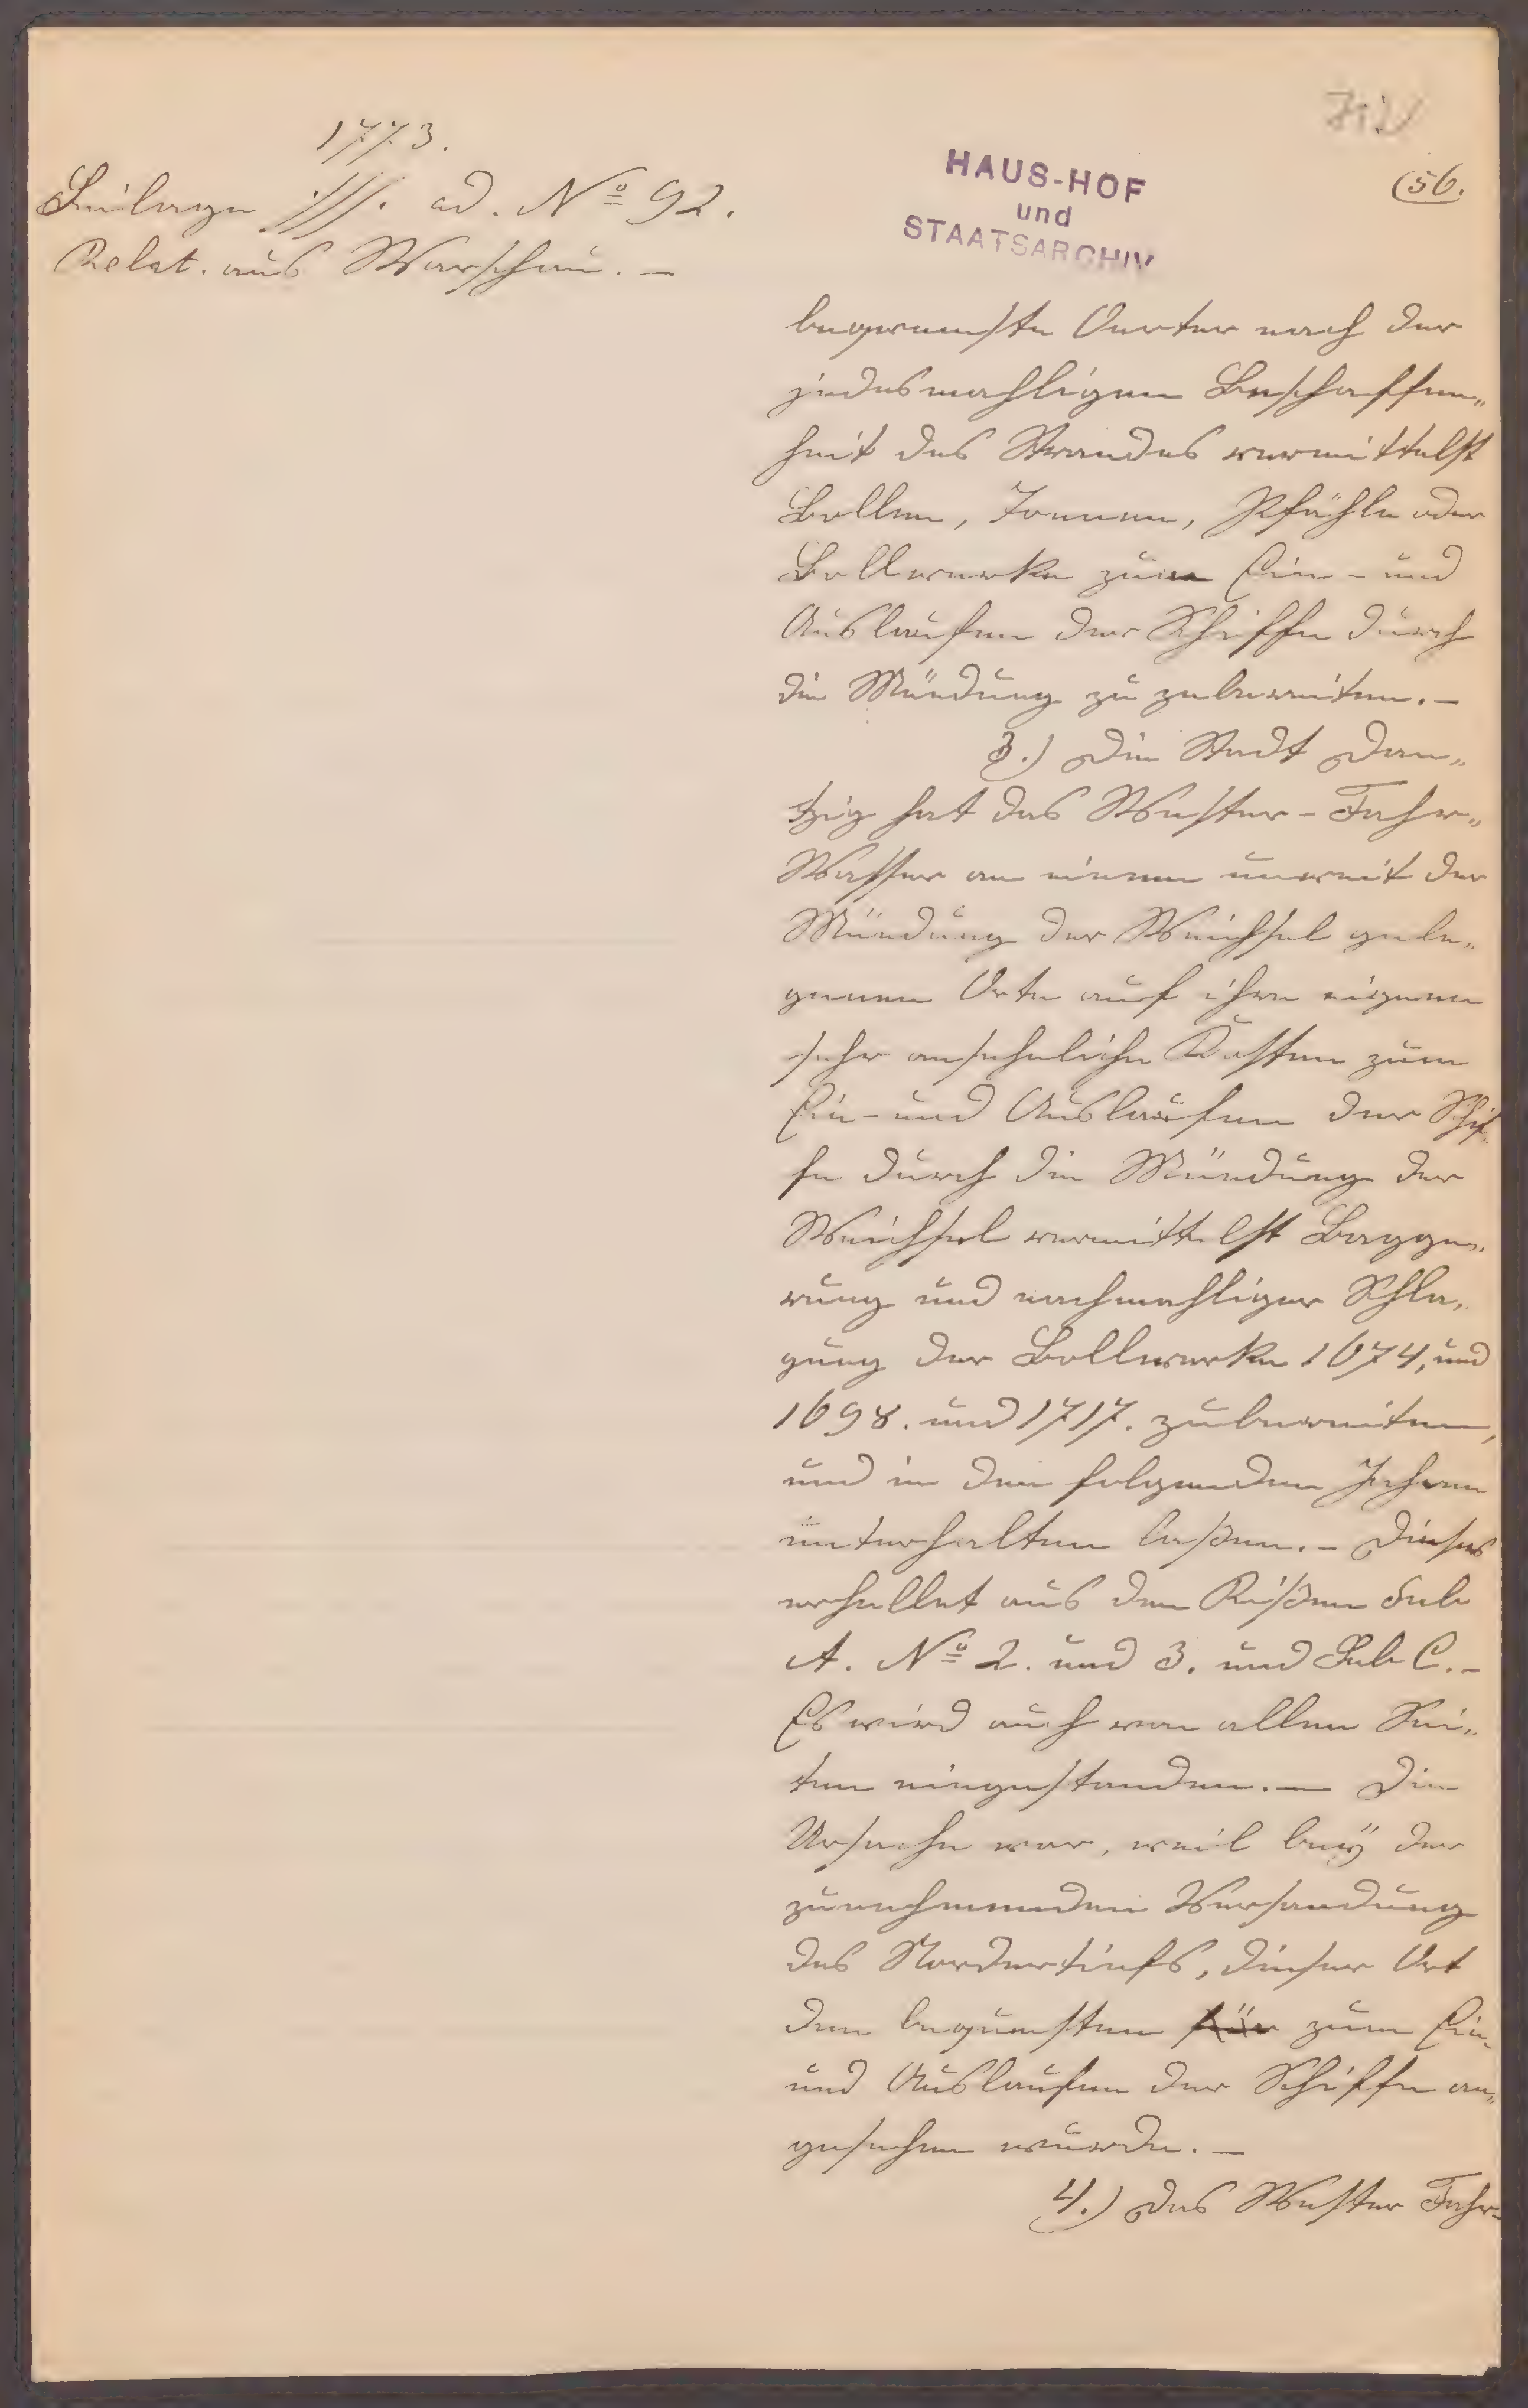 1773.
Beilage ://. ad. Nº 92.
Relat. aus Warschau. –
HAUS-HOF
und
STAATSARCHIV
(56.
bequemste Oerter nach der
jedesmahligen Beschaffen„
heit des Strandes vermittelst
Bollen, Tonnen, Pfähle oder
Bollwerke zum Ein- und
Auslaufen der Schiffe durch
die Mündung zu zubereiten. –
3.) Die Stadt Dan„
tzig hat das Wester-Fahr„
Wasser an einem unweit der
Mündung der Weichsel gele„
genen Orte auf ihre eigenen
sehr ansehnliche Kosten zum
Ein- und Auslaufen der Schif„
fe durch die Mündung der
Weichsel vermittelst Bagge„
rung und nachmahliger Schla„
gung der Bollwerke 1674, und
1698. und 1717. zubereiten,
und in den folgenden Jahren
unterhalten laßen. – Dieses
erhellet aus den Rißen Sub
A. Nº 2. und 3. und Sub C. –
Es wird auch von allen Sei„
ten eingestanden. – Die
Ursache war, weil beÿ der
zunehmenden Versandung
des Nordertiefs, dieser Ort
den bequemsten für zum Ein-
und Auslaufen der Schiffe an„
gesehen wurde. –
4.) Das Wester Fahr-